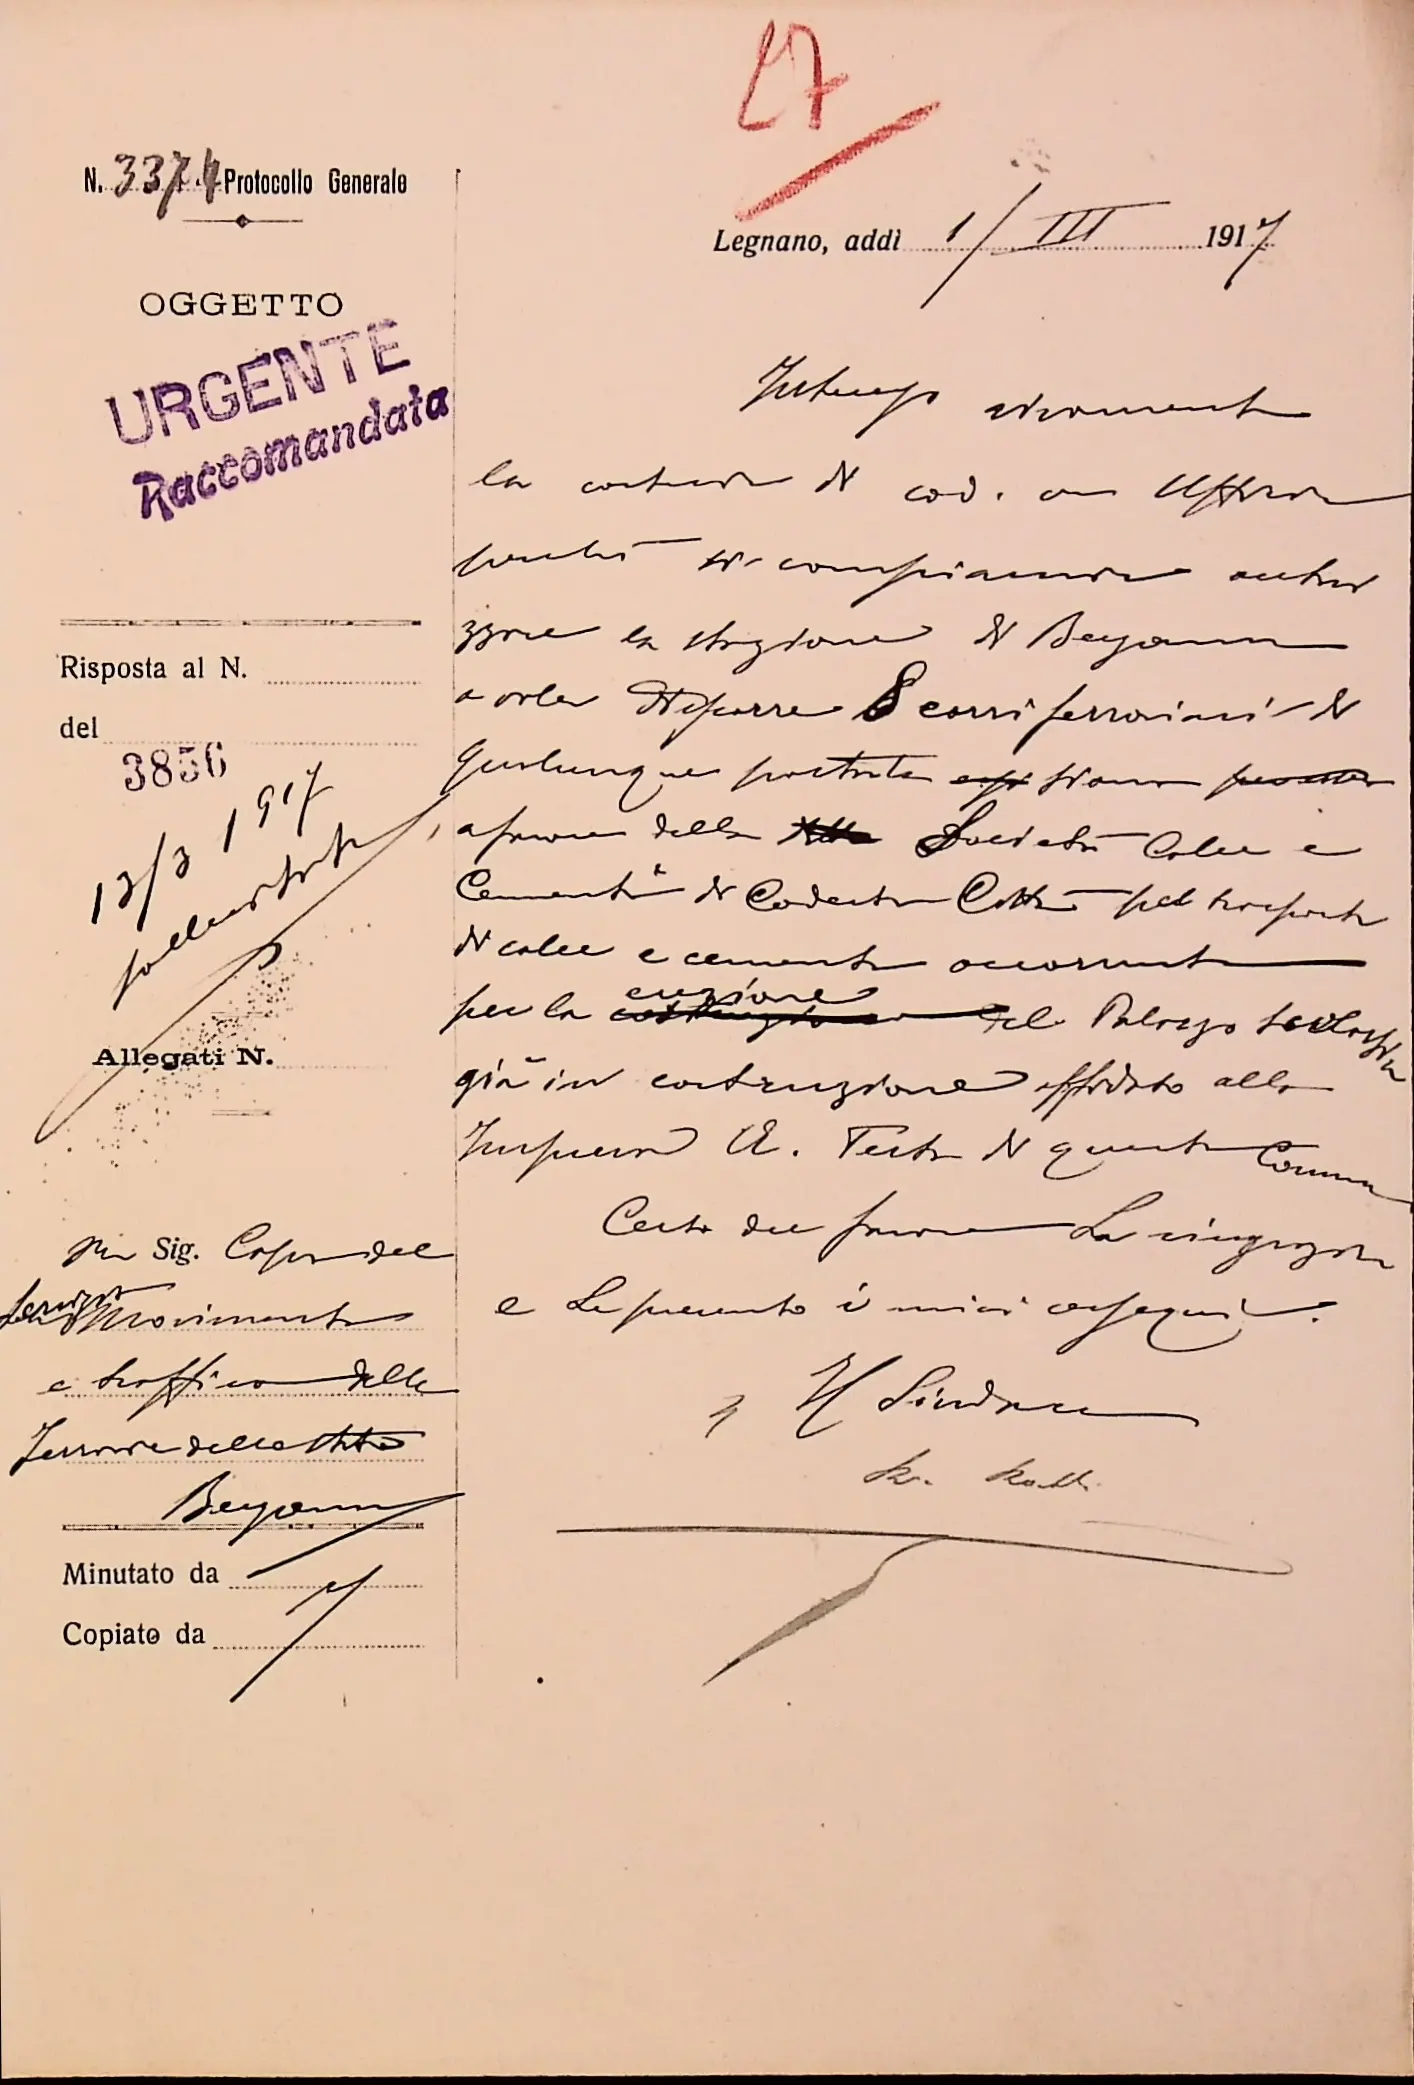 27
N. 3374 Protocollo Generale
Legnano, addì 1/III 1917
OGGETTO
URGENTE
Raccomandata
Interesso vivamente
la cortesia di cod. on. Ufficio
perché si compiaccia autori
zzare la stazione di Bergamo
a disporre 8 carri ferroviari di
qualunque portata siano
a favore della Società Calce e
Cementi di Codesta Città pel trasporto
di calce e cemento occorrente
per la erezione del Palazzo Scolastico
già in costruzione affidato alla
Impresa A. Testa di questo Comune
Certo del favore La ringrazio
e Le presento i miei ossequi.
Il Sindaco
Risposta al N.
del
3856
13/3 1917
sollecitata
Allegati N.
Sig. Capo del
Servizio Movimento
e traffico delle
Ferrovie dello Stato
Bergamo
Minutato da
Copiato da